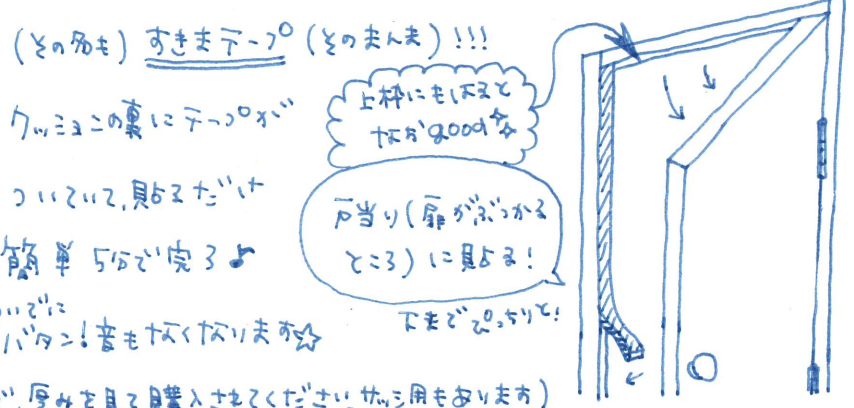 (その名も) すきまテープ (そのまんま) !!!
クッションの裏にテープが
ついていて、貼るだけ
簡単 5分で完了♪
いでに
バタン!音もなくなります☆
厚みを見て購入されてください。サッシ用もあります)
上枠にもはると
なおgood☆
戸当り(扉がぶつかる
ところ)に貼る!
下までぴっちりと!